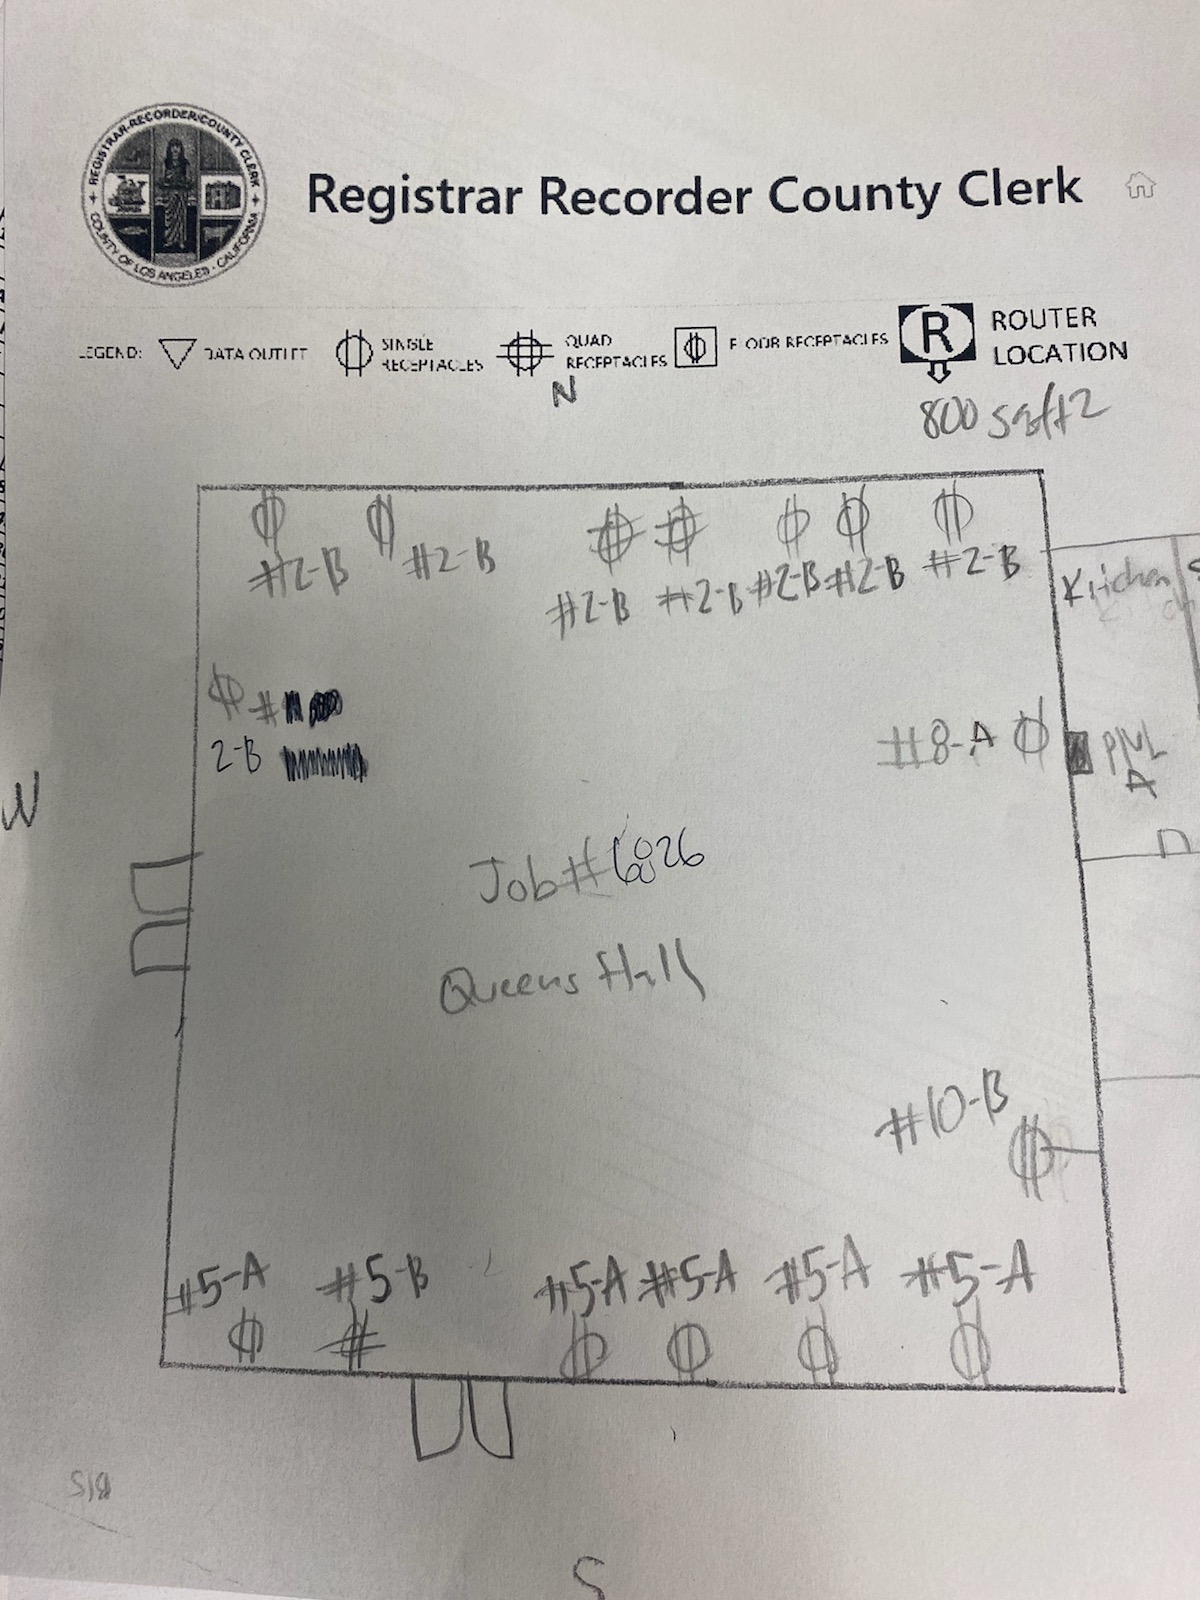 REGISTRAR-RECORDER/COUNTY CLERK
COUNTY OF LOS ANGELES - CALIFORNIA
Registrar Recorder County Clerk
LEGEND:
DATA OUTLET
SINGLE
RECEPTACLES
QUAD
RECEPTACLES
FLOOR RECEPTACLES
R
ROUTER
LOCATION
N
800 sqft2
#2-B
#2-B
#2-B
#2-B
#2-B
#2-B
#2-B
Kitchen
#
2-B
#8-A
PNL
A
W
Job#
26
Queens Hall
#10-B
#5-A
#5-B
#5-A
#5-A
#5-A
#5-A
S